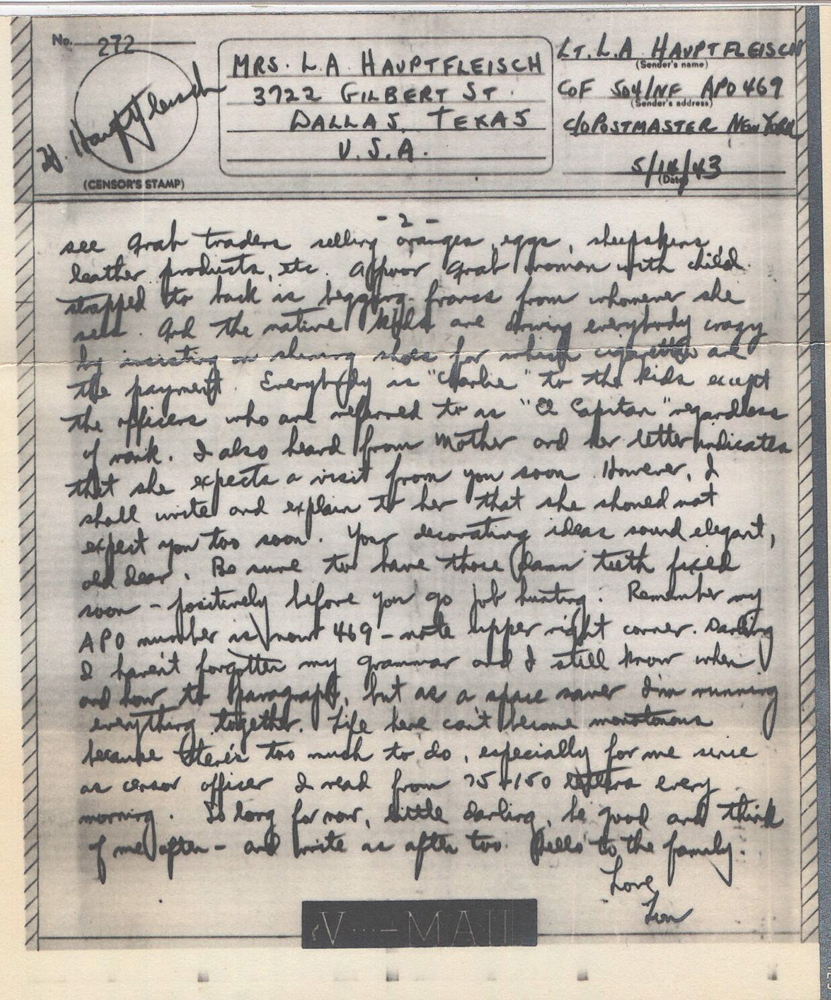 No. 272
MRS. L.A HAUPTFLEISCH
3722 GILBERT ST.
DALLAS, TEXAS
U.S.A.
LT. L.A HAUPTFLEISCH
(Sender's name)
CoF 504/NF APO 469
(Sender's address)
C/O POSTMASTER NEW YORK
5/14/43
(Date)
Hauptfleisch
(CENSOR'S STAMP)
- 2 -
see Arab traders selling oranges, eggs, sheepskins,
leather products, etc. A poor Arab woman with child
strapped to back is begging francs from whomever she
sees. And the native kids are driving everybody crazy
by insisting on shining shoes for which cigarettes are
the payment. Everybody is "Charlie" to the kids except
the officers who are referred to as "El Capitan" regardless
of rank. I also heard from Mother and her letter indicates
that she expects a visit from you soon. However, I
shall write and explain to her that she should not
expect you too soon. Your decorating ideas sound elegant,
old dear. Be sure to have those damn teeth fixed
soon - positively before you go job hunting. Remember my
APO number is now 469 - note upper right corner. Darling
I haven't forgotten my grammar and I still know when
and how to paragraph, but as a space saver I'm running
everything together. Life here can't become monotonous
because there's too much to do, especially for me since
as censor officer I read from 75-150 letters every
morning. So long for now, little darling, be good and think
of me often - and write as often too. Hello to the family.
Love,
V...-MAIL